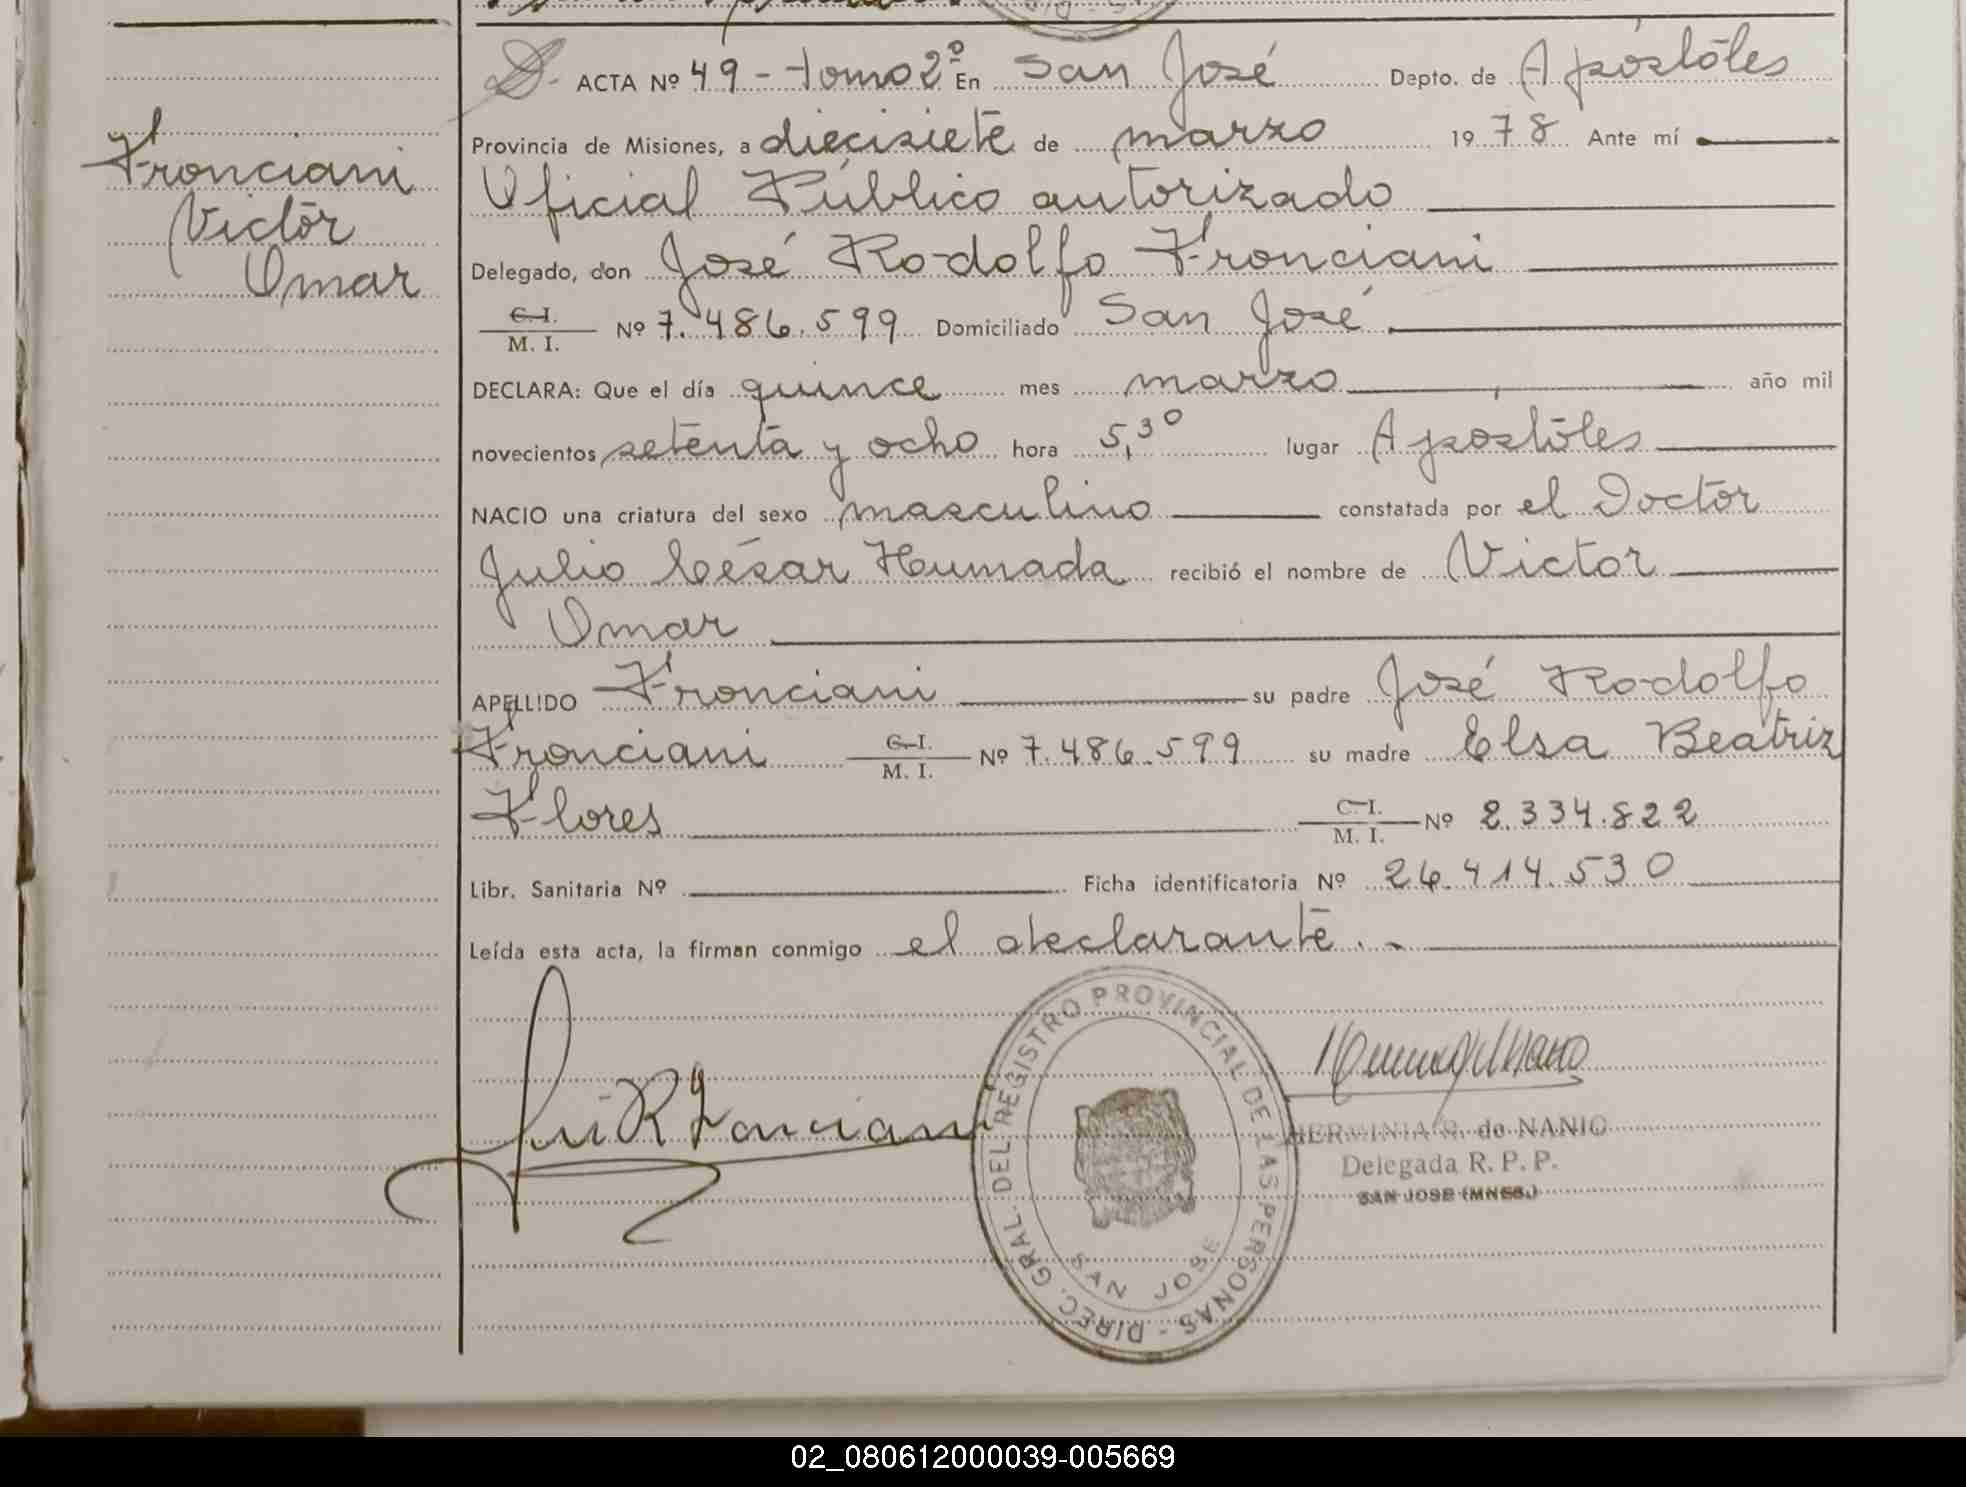 Fronciani
Victor
Omar
ACTA Nº 49 - tomo 2º En San José Depto. de Apóstoles
Provincia de Misiones, a diecisiete de marzo 1978 Ante mí
Oficial Público autorizado
Delegado, don José Rodolfo Fronciani
C.I.
M. I. Nº 7.486.599 Domiciliado San José
DECLARA: Que el día quince mes marzo año mil
novecientos setenta y ocho hora 5,30 lugar Apóstoles
NACIO una criatura del sexo masculino constatada por el Doctor
Julio César Humada recibió el nombre de Victor
Omar
APELLIDO Fronciani su padre José Rodolfo
Fronciani C.I. M. I. Nº 7.486.599 su madre Elsa Beatriz
Flores C.I. M. I. Nº 2.334.822
Libr. Sanitaria Nº Ficha identificatoria Nº 26.414.530
Leída esta acta, la firman conmigo el declarante.-
DIREC. GRAL. DEL REGISTRO PROVINCIAL DE LAS PERSONAS -
SAN JOSE
HERMINIA de NANIO
Delegada R. P. P.
SAN JOSE (MNES.)
02_080612000039-005669